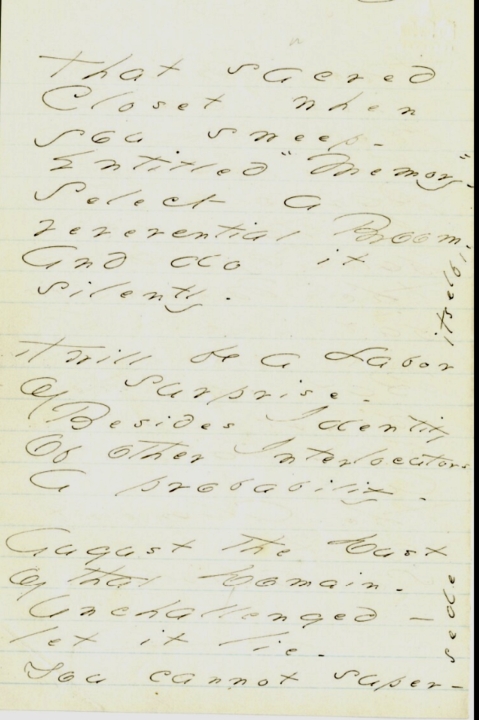 That sacred
Closet when
you sweep -
Entitled "Memory" -
Select a
reverential Broom -
And do it
silently.
'Twill be a Labor
of surprise -
Besides Identity
Of other Interlocutors
A probability -
August the Dust
of that Domain -
Unchallenged -
let it lie -
You cannot super-
sede
itself,